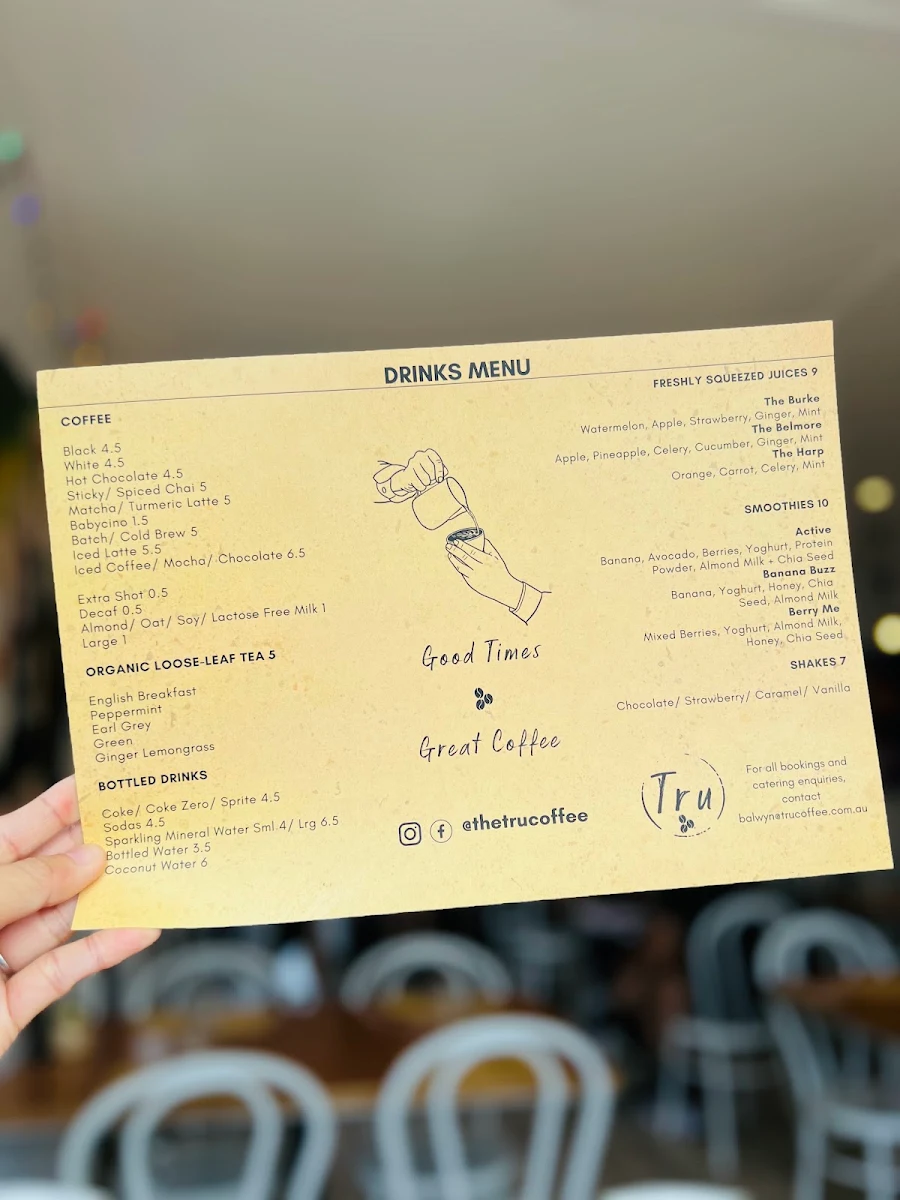 DRINKS MENU
COFFEE
Black 4.5
White 4.5
Hot Chocolate 4.5
Sticky/ Spiced Chai 5
Matcha/ Turmeric Latte 5
Babycino 1.5
Batch/ Cold Brew 5
Iced Latte 5.5
Iced Coffee/ Mocha/ Chocolate 6.5
Extra Shot 0.5
Decaf 0.5
Almond/ Oat/ Soy/ Lactose Free Milk 1
Large 1
ORGANIC LOOSE-LEAF TEA 5
English Breakfast
Peppermint
Earl Grey
Green
Ginger Lemongrass
BOTTLED DRINKS
Coke/ Coke Zero/ Sprite 4.5
Sodas 4.5
Sparkling Mineral Water Sml 4/ Lrg 6.5
Bottled Water 3.5
Coconut Water 6
Good Times
Great Coffee
@thetrucoffee
FRESHLY SQUEEZED JUICES 9
The Burke
Watermelon, Apple, Strawberry, Ginger, Mint
The Belmore
Apple, Pineapple, Celery, Cucumber, Ginger, Mint
The Harp
Orange, Carrot, Celery, Mint
SMOOTHIES 10
Active
Banana, Avocado, Berries, Yoghurt, Protein
Powder, Almond Milk + Chia Seed
Banana Buzz
Banana, Yoghurt, Honey, Chia
Seed, Almond Milk
Berry Me
Mixed Berries, Yoghurt, Almond Milk,
Honey, Chia Seed
SHAKES 7
Chocolate/ Strawberry/ Caramel/ Vanilla
Tru
For all bookings and
catering enquiries,
contact
balwyn@trucoffee.com.au